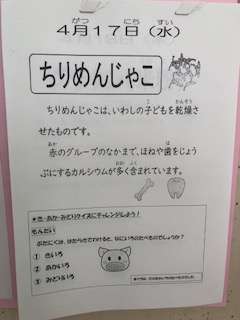 4月17日（水）
ちりめんじゃこ
ちりめんじゃこは、いわしの子どもを乾燥さ
せたものです。
赤のグループのなかまで、ほねや歯をじょう
ぶにするカルシウムが多く含まれています。
★き・あか・みどりクイズにチャレンジしよう！
もんだい
ぶたにくは、はたらきでわけると、なにいろのたべものでしょうか？
① きいろ
② あかいろ
③ みどりいろ